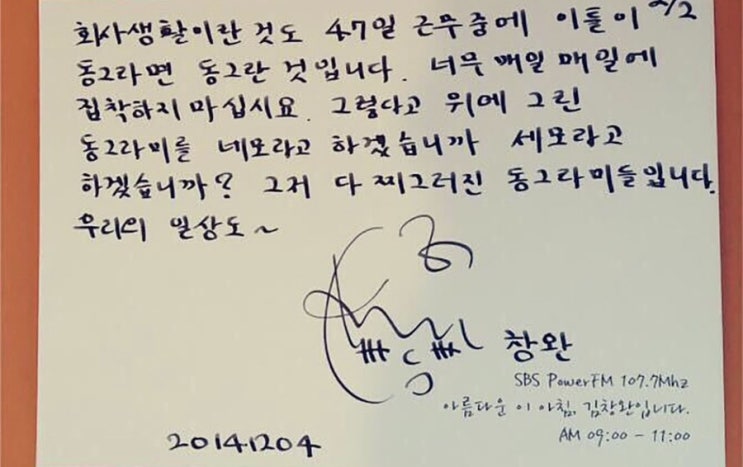 회사생활이란 것도 47일 근무중에 이틀이
동그라면 동그란 것입니다. 너무 매일 매일에
집착하지 마십시요. 그렇다고 위에 그린
동그라미를 네모라고 하겠습니까 세모라고
하겠습니까? 그저 다 찌그러진 동그라미들입니다.
우리의 일상도~
창완
SBS PowerFM 107.7Mhz
아름다운 이 아침, 김창완입니다.
AM 09:00 - 11:00
20141204